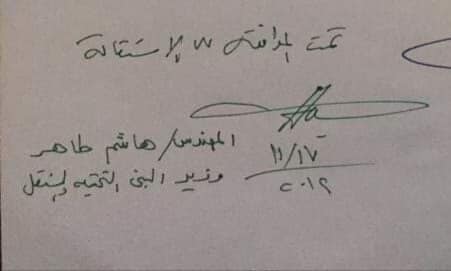 تمت الموافقة على الإستقالة
المهندس/ هاشم طاهر
١١/١٧
وزير البنى التحتيه والنقل
٢٠١٩